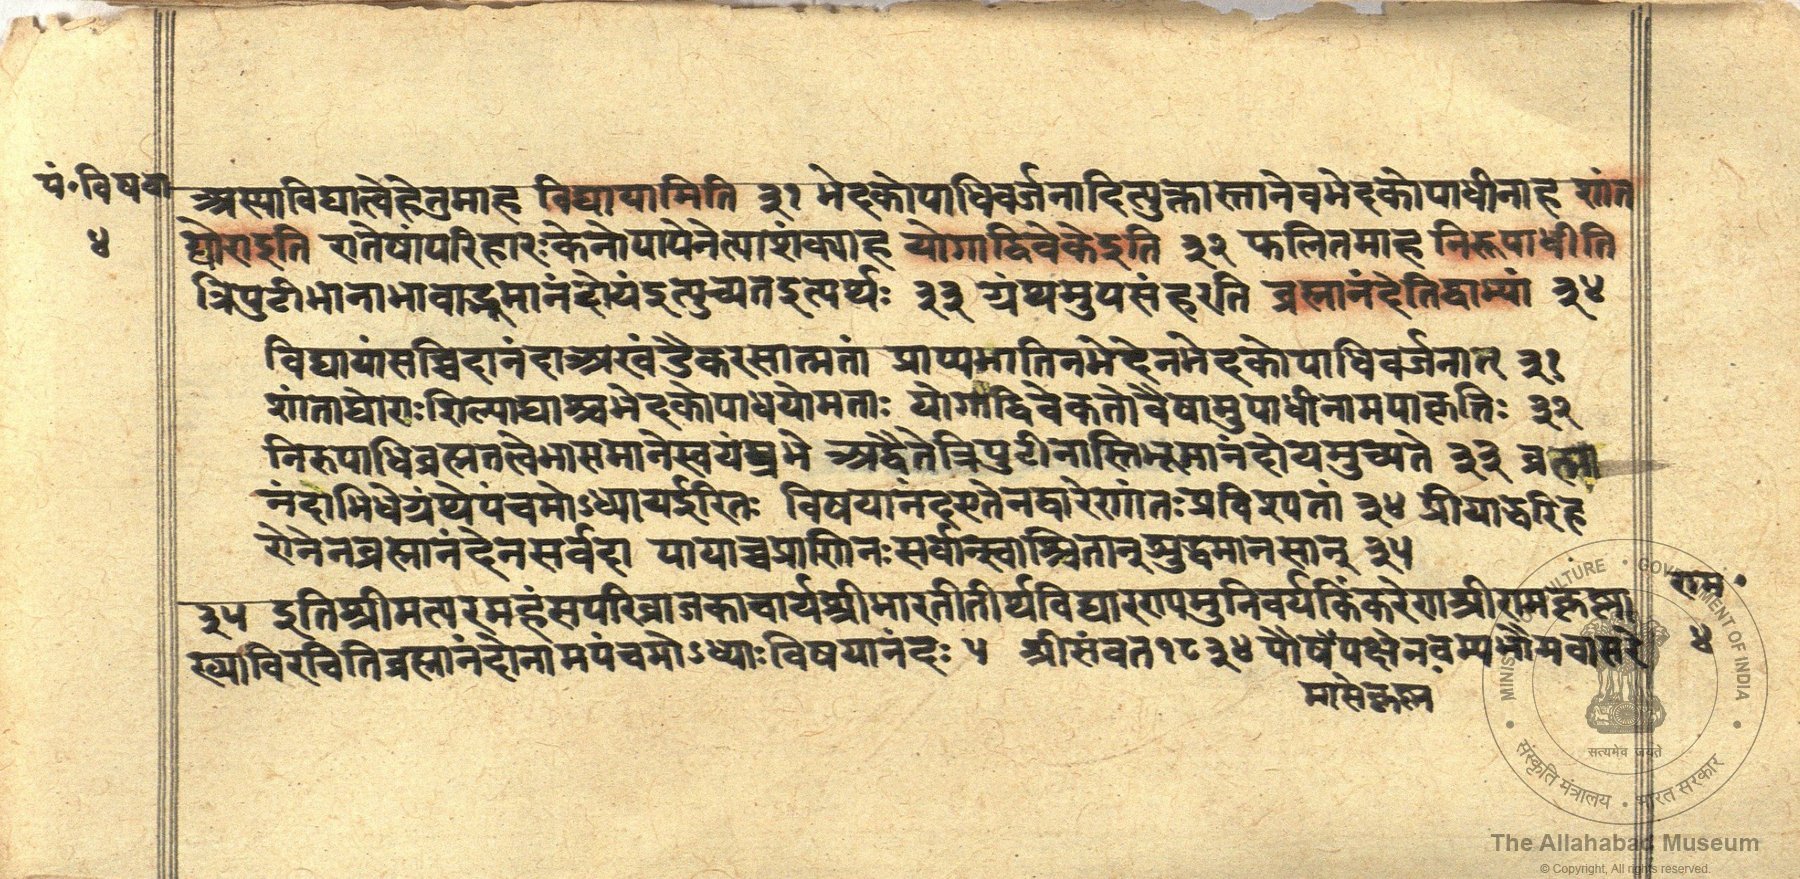 पं॰विषया
४
अस्याविद्यात्वेहेतुमाह विद्यायामिति ३१ भेदकोपाधिवर्जनादित्युक्तास्तानेवभेदकोपाधीनाह शांत
घोराइति एतेषांपरिहारःकेनोपायेनेत्याशंक्याह योगाद्विवेकेइति ३२ फलितमाह निरूपाधीति
त्रिपुटीभानाभावाद्भूमानंदोयंइत्युच्यतइत्यर्थः ३३ ग्रंथमुपसंहरति ब्रह्मानंदेतिद्वाभ्यां ३४
विद्यायांसच्चिदानंदाअखंडैकरसात्मतां प्राप्यभातिनभेदेनभेदकोपाधिवर्जनात् ३१
शांताघोराःशिल्पाद्याश्चभेदकोपाधयोमताः योगाद्विवेकतोवैषामुपाधीनामपाकृतिः ३२
निरुपाधिब्रह्मतत्वेभासमानेस्वयंप्रभे अद्वैतेत्रिपुटीनास्तिभूमानंदोयमुच्यते ३३ ब्रह्मा
नंदाभिधेग्रंथेपंचमोऽध्यायईरितः विषयानंदएतेनद्वारेणांतःप्रविश्यतां ३४ प्रीयाद्धरिह
रोनेनब्रह्मानंदेनसर्वदा पायाच्चप्राणिनःसर्वान्स्वाश्रितान्शुद्धमानसान् ३५
३५ इतिश्रीमत्परमहंसपरिव्राजकाचार्यश्रीभारतीतीर्थविद्यारण्यमुनिवर्यकिंकरेणश्रीरामकृष्णा
ख्याविरचितिब्रह्मानंदोनामपंचमोऽध्याःविषयानंदः ५ श्रीसंवत१८३४पौषेपक्षेनवम्यभौमवासरे
मासेकृष्ण
राम॰
४
MINISTRY OF CULTURE • GOVERNMENT OF INDIA
सत्यमेव जयते
संस्कृति मंत्रालय • भारत सरकार
The Allahabad Museum
© Copyright, All rights reserved.